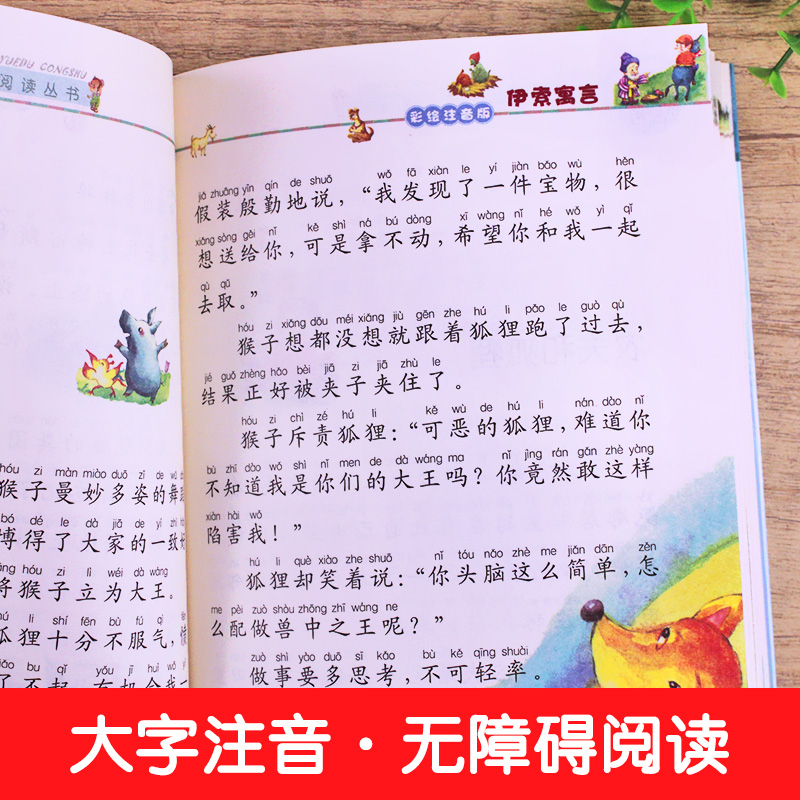 YUEDU CONGSHU
阅读丛书
hóu zi màn miào duō zī de wǔ
猴子曼妙多姿的舞
bó dé le dà jiā de yí zhì
博得了大家的一致
hóu zi lì wéi dà wáng
将猴子立为大王。
hú li shí fēn bù fú qì
狐狸十分不服气,
bu qǐ yǒu jī huì wǒ
了不起,有机会我一
彩绘注音版
伊索寓言
jiǎ zhuāng yīn qín de shuō wǒ fā xiàn le yí jiàn bǎo wù hěn
假装殷勤地说,“我发现了一件宝物,很
xiǎng sòng gěi nǐ kě shì ná bú dòng xī wàng nǐ hé wǒ yì qǐ
想送给你,可是拿不动,希望你和我一起
qù qǔ
去取。”
hóu zi xiǎng dōu méi xiǎng jiù gēn zhe hú li pǎo le guò qù
猴子想都没想就跟着狐狸跑了过去,
jié guǒ zhèng hǎo bèi jiā zi jiā zhù le
结果正好被夹子夹住了。
hóu zi chì zé hú li kě wù de hú li nán dào nǐ
猴子斥责狐狸:“可恶的狐狸,难道你
bù zhī dào wǒ shì nǐ men de dà wáng ma nǐ jìng rán gǎn zhè yàng
不知道我是你们的大王吗?你竟然敢这样
xiàn hài wǒ
陷害我!”
hú li què xiào zhe shuō nǐ tóu nǎo zhè me jiǎn dān zěn
狐狸却笑着说:“你头脑这么简单,怎
me pèi zuò shòu zhōng zhī wáng ne
么配做兽中之王呢?”
zuò shì yào duō sī kǎo bù kě qīng shuài
做事要多思考,不可轻率。
大字注音·无障碍阅读